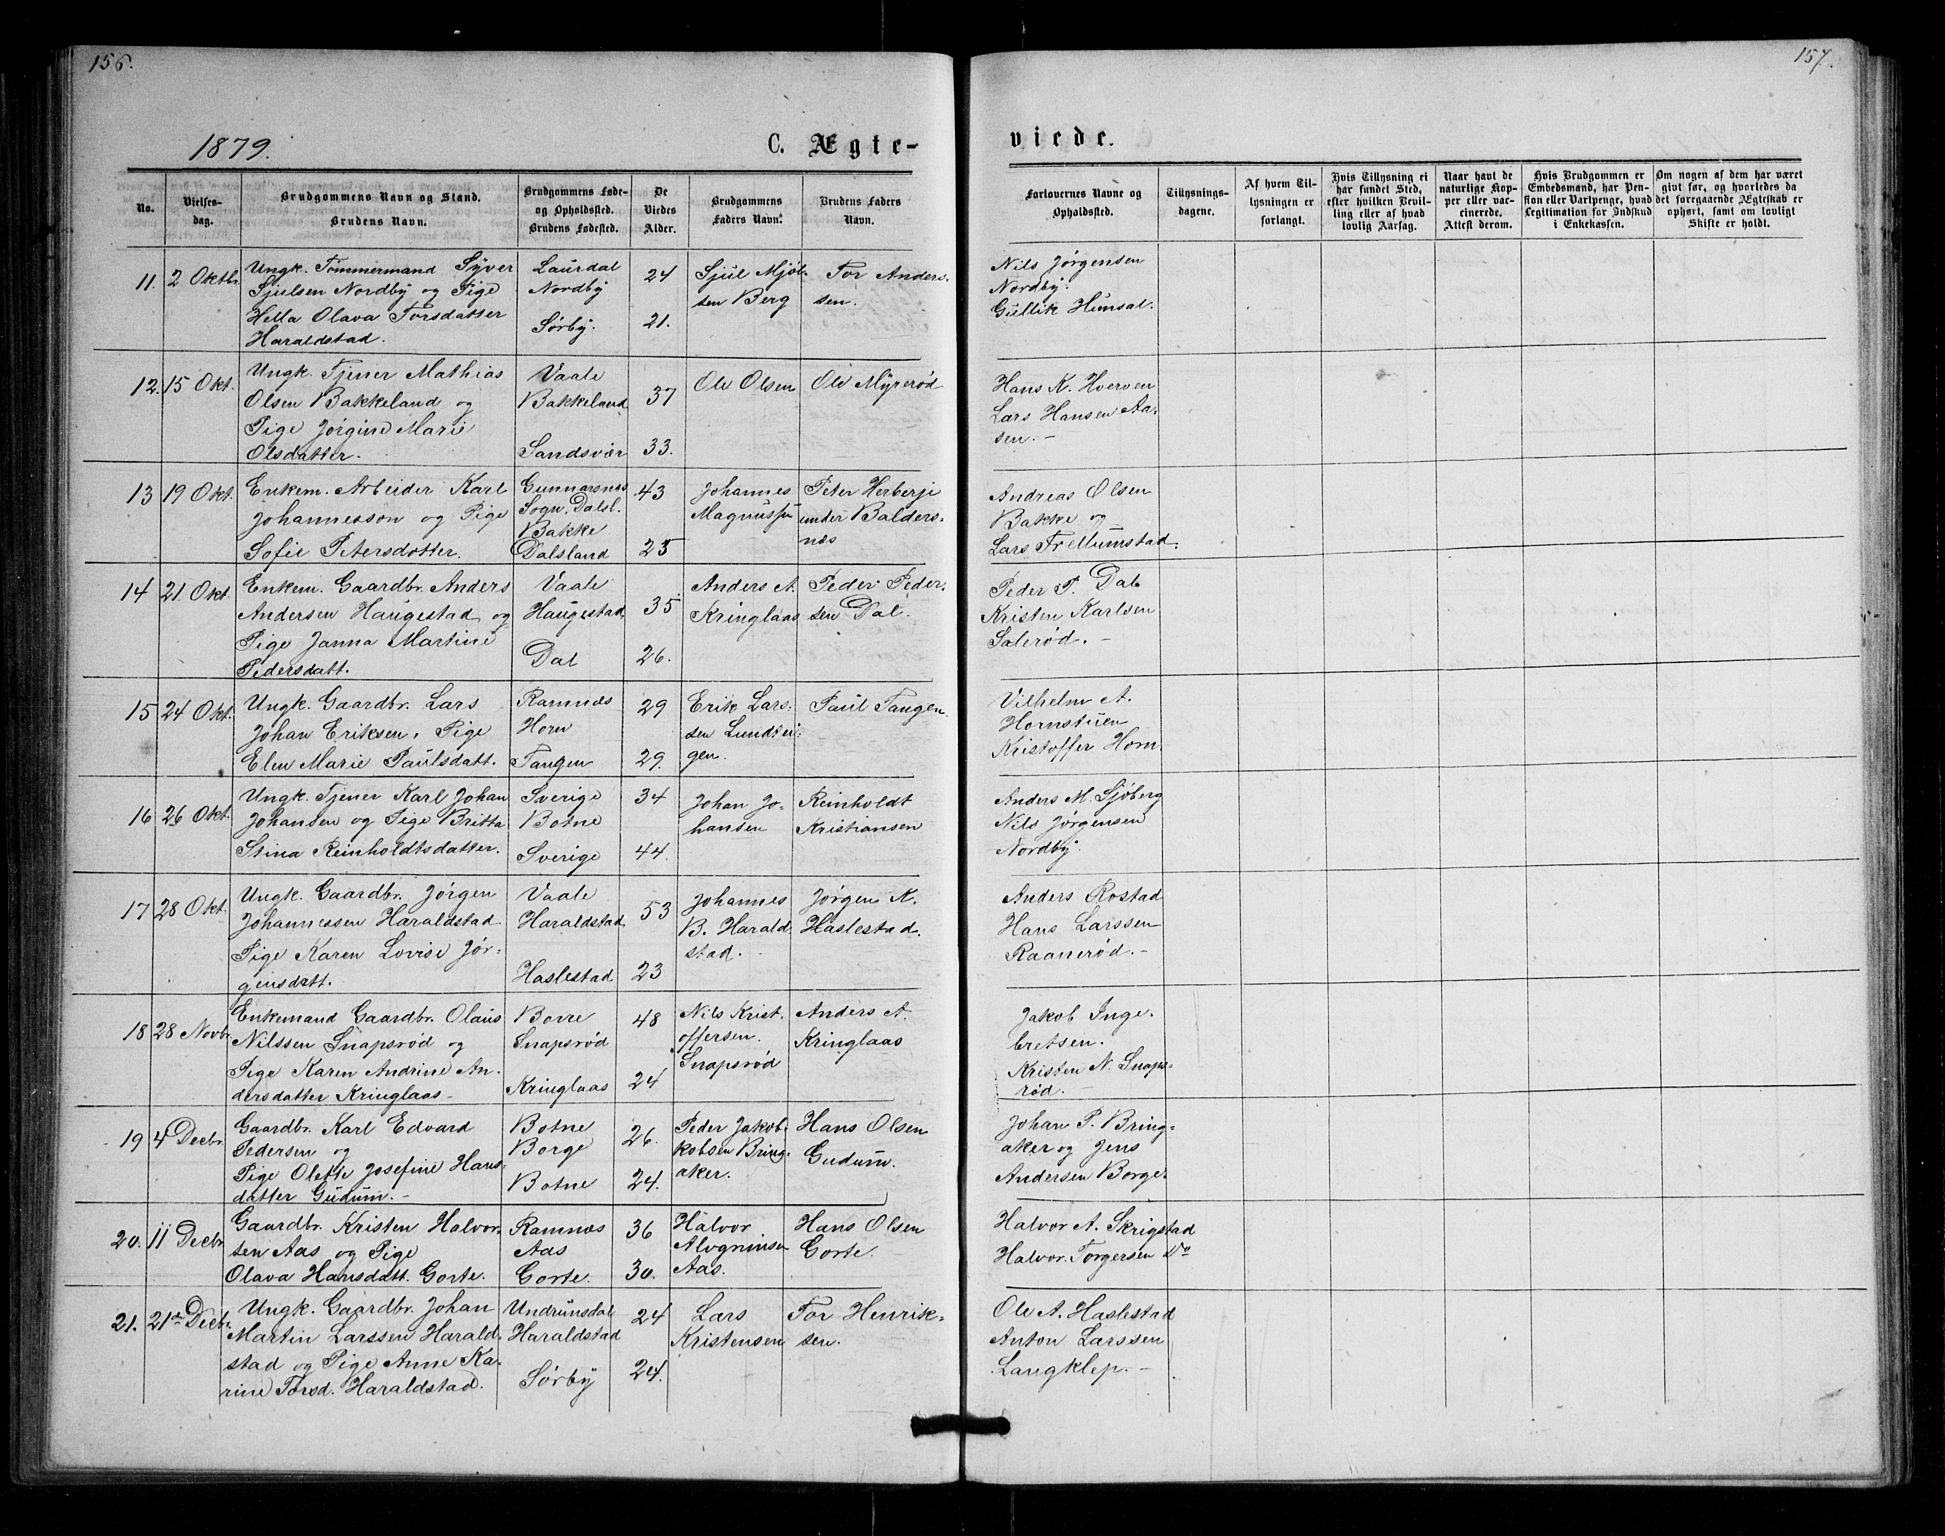 156.
157.
1879.
C. Ægte-
viede.
No.
Vielses-
dag.
Brudgommens Navn og Stand.
Brudens Navn.
Brudgommens Føde-
og Opholdssted.
Brudens Fødested.
De
Viedes
Alder.
Brudgommens
Faders Navn.
Brudens Faders
Navn.
Forlovernes Navne og
Opholdssted.
Tillysnings-
dagene.
Af hvem Til-
lysningen er
forlangt.
Hvis Tillysning ei
har fundet Sted,
efter hvilken Bevil-
ling eller af hvad
lovlig Aarsag.
Naar havt de
naturlige Kop-
per eller vac-
cinerede.
Attest derom.
Hvis Brudgommen er
Embedsmand, har Pen-
sion eller Vartpenge, hvad
Legitimation for Indskud
i Enkekassen.
Om nogen af dem har været
givt før, og hvorledes da
det foregaaende Ægteskab er
ophørt, samt om lovligt
Skifte er holdt.
11.
2 Oktbr.
Ungk. Tømmermand Syver
Sjulsen Nordby og Pige
Hella Olava Torsdatter
Haraldstad.
Laurdal
Nordby
Sørby.
24
21.
Sjul Mjøl-
sen Berg
Tor Anders-
sen.
Nils Jørgensen
Nordby.
Gullik Hunsal.
12.
15 Okt.
Ungk. Tjener Mathias
Olsen Bakkeland og
Pige Jørgine Marie
Olsdatter.
Vaale
Bakkeland
Sandsvær
37
33.
Ole Olsen
Ole Myrerød
Hans K. Hverven
Lars Hansen Aa-
sen.-
13
19 Okt.
Enkem. Arbeider Karl
Johannesson og Pige
Sofie Petersdotter.
Gunnarsnes
Sogn, Dalsl.
Bakke
Dalsland
43
25
Johannes
Magnussen
Peter Herberje
under Balders-
næs
Andreas Olsen
Bakke og
Lars Fr. Mumstad.
14
21. Okt.
Enkem. Gaardbr. Anders
Andersen Haugestad og
Pige Janna Martine
Pedersdatt.
Vaale
Haugestad
Dal
35
26.
Anders A.
Kringlaas
Peder Peder-
sen Dal.
Peder P. Dal
Kristen Karlsen
Solerød.-
15
24 Okt.
Ungk. Gaardbr. Lars
Johan Eriksen, Pige
Elen Marie Paulsdatt.
Ramnæs
Horn
Tangen
29
29.
Erik Lars-
sen Lundtei-
gen.
Paul Tangen.
Vilhelm A.
Hornstuen
Kristoffer Horn.
16
26 Okt.
Ungk. Tjener Karl Johan
Johansen og Pige Britta
Stina Reinholdtsdatter.
Sverige
Botne
Sverige
34
44.
Johan Jo-
hansen
Reinholdt
Kristiansen
Anders M. Sjøberg
Nils Jørgensen
Nordby.
17
28 Okt.
Ungk. Gaardbr. Jørgen
Johannessen Haraldstad
Pige Karen Lovise Jør-
gensdatt.
Vaale
Haraldstad
Haslestad
53
23
Johannes
B. Harald
stad.
Jørgen K.
Haslestad.
Anders Rostad
Hans Larssen
Raanerød.-
18
28 Novbr.
Enkemand Gaardbr. Olaus
Nilssen Snapsrød og
Pige Karen Andrine An-
dersdatter Kringlaas-
Borre
Snapsrød
Kringlaas
48
24
Nils Krist-
offersen.
Snapsrød
Anders A.
Kringlaas
Jakob Inge-
bretsen.
Kristen N. Snaps-
rød.-
19
4 Decbr.
Gaardbr. Karl Edvard
Pedersen og
Pige Olette Josefine Hans-
datter Gudum.-
Botne
Borge
Botne
26.
24.
Peder Jakob-
kobsen Bring-
aker.
Hans Olsen
Gudum.
Johan P. Bring-
aker og Jens
Andersen Borge.
20.
11 Decbr
Gaardbr. Kristen Halvor-
sen Aas og Pige
Olava Hansdatt. Gorte.
Ramnæs
Aas
Gorte.
36
30.
Halvor
Aas.
Hans Olsen
Gorte.
Halvor A. Skrigstad
Halvor Torgersen Do
21.
21de Decbr.
Ungk. Gaardbr. Johan
Martin Larssen Harald-
stad og Pige Anne Ka-
rine Torsd. Haraldstad.
Undrunsdal
Haraldstad
Sørby
24
24.
Lars
Kristensen
Tor Henrik-
sen.
Ole A. Haslestad
Anton Larssen
Langklep.-